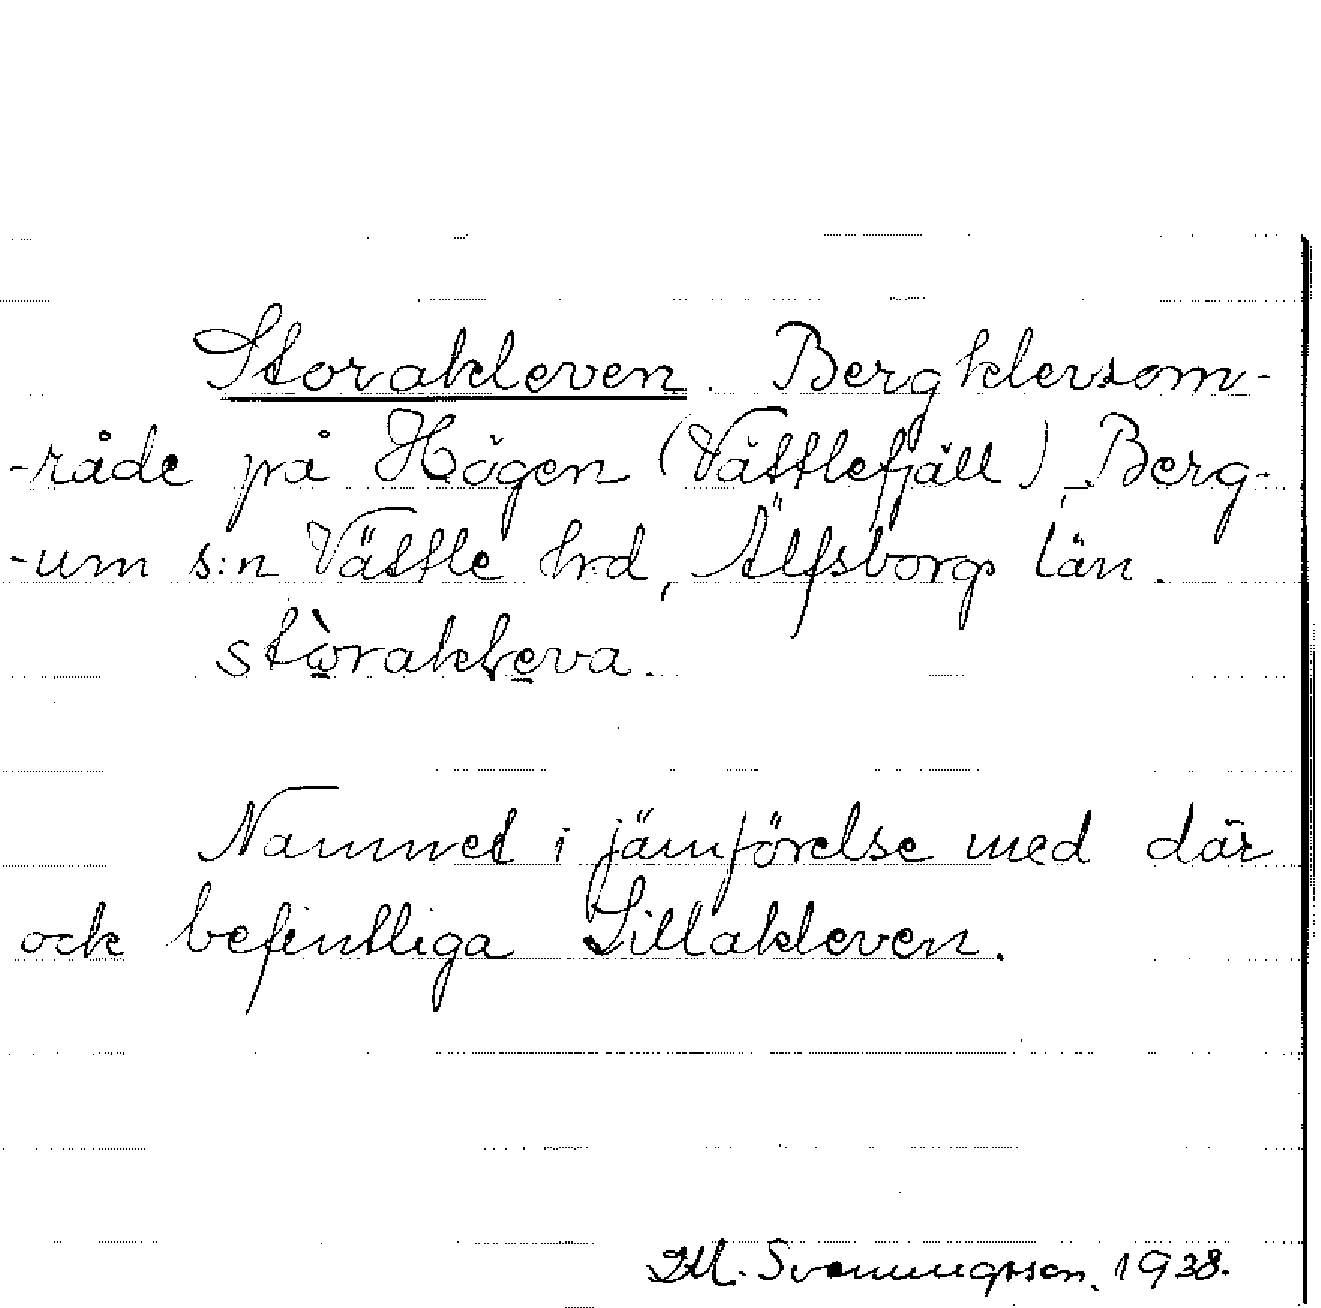 Storakleven. Bergklevsom-
-råde på Högen (Vättlefjäll), Berg-
-um s:n Vättle hrd, Älfsborgs län.
stòrakleva.
Namnet i jämförelse med där
ock befintliga Lillakleven.
Svenningsson, 1938.